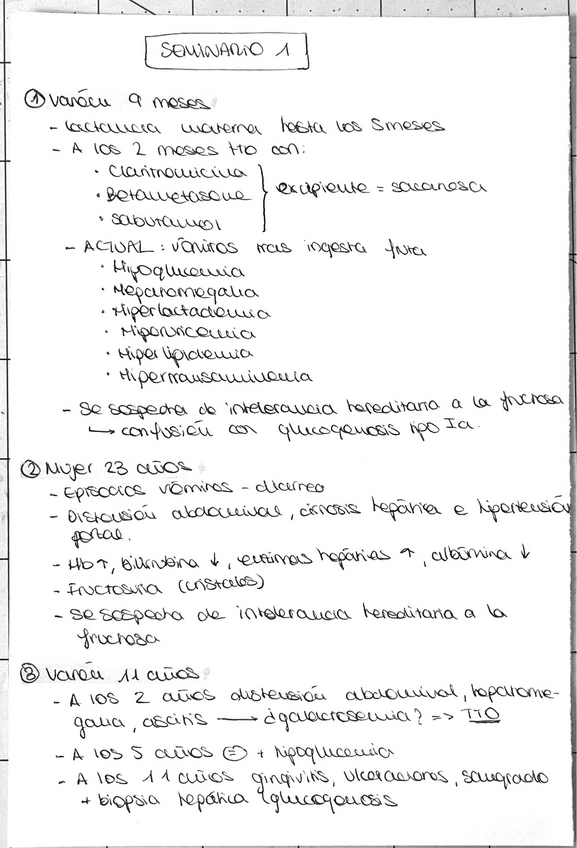 SEMINARIO 1
① Varón 9 meses
- Lactancia materna hasta los 5 meses
- A los 2 meses tto con:
· Claritromicina
· Betametasona
· Salbutamol
} excipiente = sacarosa
- ACTUAL : vómitos tras ingesta fruta
· Hipoglucemia
· Hepatomegalia
· Hiperlactademia
· Hiperuricemia
· Hiperlipidemia
· Hipertransaminemia
- Se sospecha de intolerancia hereditaria a la fructosa
↳ confusión con glucogenosis tipo Ia.
② Mujer 23 años
- Episodios vómitos - diarrea
- Distensión abdominal, cirrosis hepática e hipertensión
portal.
- Hb ↑, bilirrubina ↓, enzimas hepáticas ↑, albúmina ↓
- Fructosuria (cristales)
- Se sospecha de intolerancia hereditaria a la
fructosa
③ Varón 11 años
- A los 2 años distensión abdominal, hepatome-
galia, ascitis → ¿galactosemia? => TTO
- A los 5 años ⊜ + hipoglucemia
- A los 11 años gingivitis, ulceraciones, sangrado
+ biopsia hepática glucogenosis